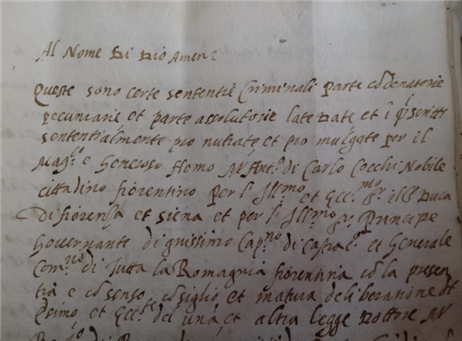 Al Nome Di Dio Amen
Queste sono certe sententie Criminali parte cõdenatorie
pecuniarie et parte assolutorie late date et ĩ
sententialmente pro nutiate et pro mulgate per il
Mag.co e Generoso Homo Carlo Cocchi Nobile
cittadino fiorentino per l' Ill.mo et Ecc.mo Duca
Di fiorensa et siena et per l' Ill.mo Principe
Governante dignissimo Cap.no di et Generale
di Tutta la Romagnia fiorentina cõ la presen
tia e cõ senso cõ siglio et matura deliberatione
et Ecc. del una et altra legge Dottore